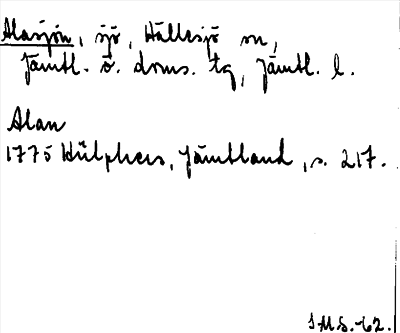 Alasjön, sjö, Hällesjö sn,
Jämtl. ö. doms. tg, Jämtl. l.
Alan
1775 Hülphers, Jämtland, s. 217.
IMS.-62.